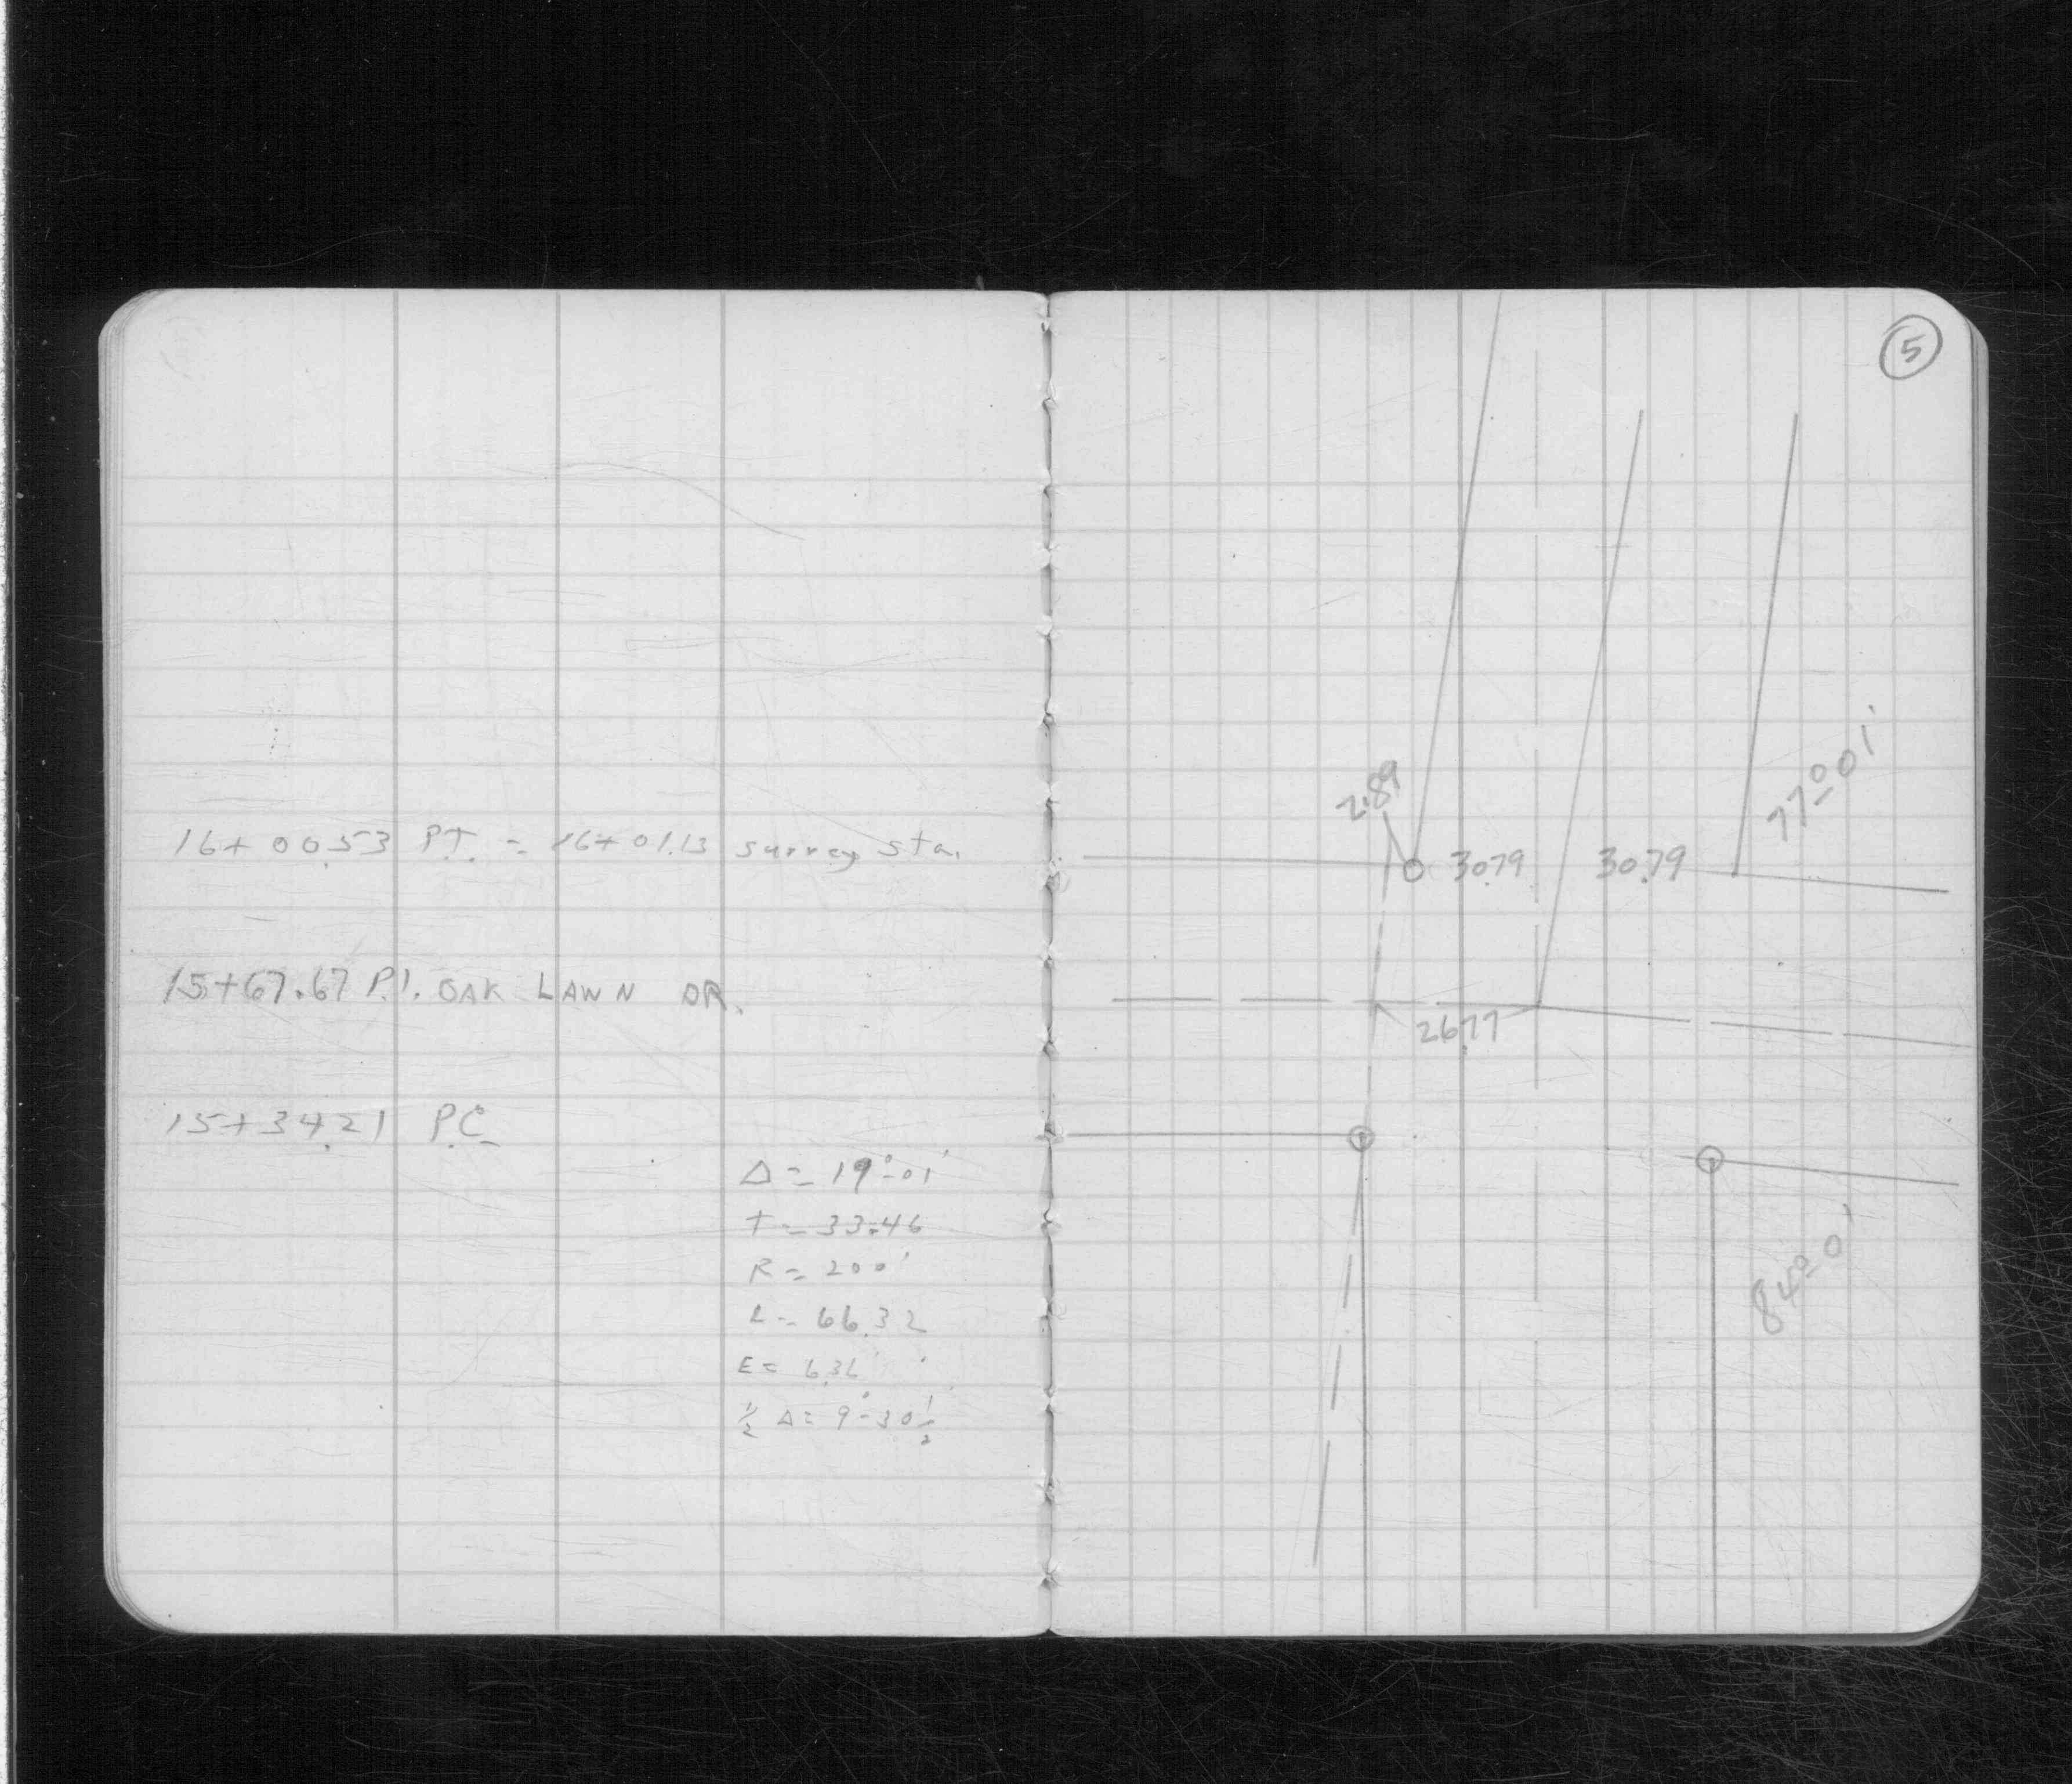 16+00.53 P.T. = 16+01.13 survey sta.
15+67.67 P.I. OAK LAWN DR.
15+34.21 P.C.
Δ = 19°-01'
T = 33.46
R = 200'
L = 66.32
E = 6.36'
½ Δ = 9°-30½'
5
77°01'
2.89
30.79 30.79
26.77
84°01'